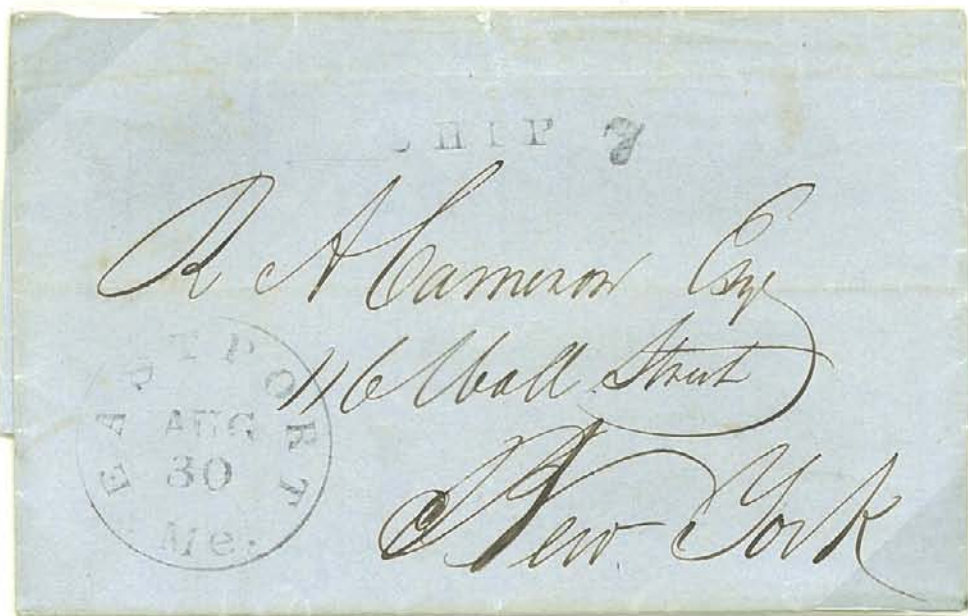 SHIP 7
R A Cameron Esqr
116 Wall Street
New York
EASTPORT
AUG
30
Me.